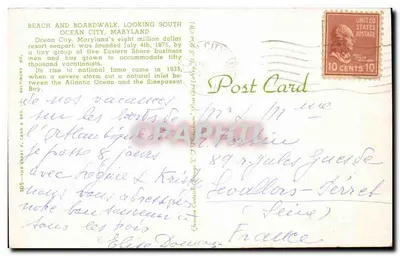 BEACH AND BOARDWALK, LOOKING SOUTH
OCEAN CITY, MARYLAND
Ocean City, Maryland's eight million dollar
resort seaport was founded July 4th, 1875, by
a tiny group of five Eastern Shore business
men and has grown to accommodate fifty
thousand vacationists.
Its rise to national fame came in 1933,
when a severe storm cut a natural inlet between
the Atlantic Ocean and the Sinepuxent
Bay.
de nos vacances
sur les bords de
l'atlantique
je passe 8 jours
avec
nous vous adressons
notre bon souvenir
à tous les
Elise
Post Card
UNITED STATES
POSTAGE
10 CENTS 10
Mr & Mme
89 r. Jules Guesde
Levallois-Perret
(Seine)
France